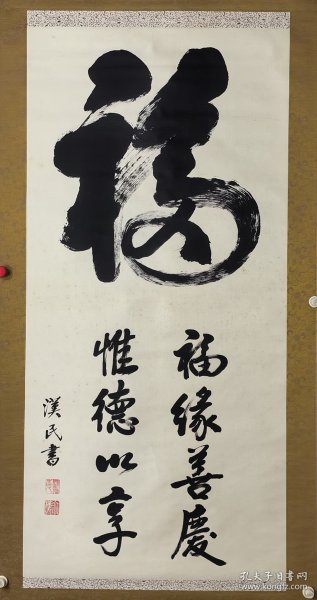 福
福缘善慶
惟德以享
漢民書
孔夫子旧书网